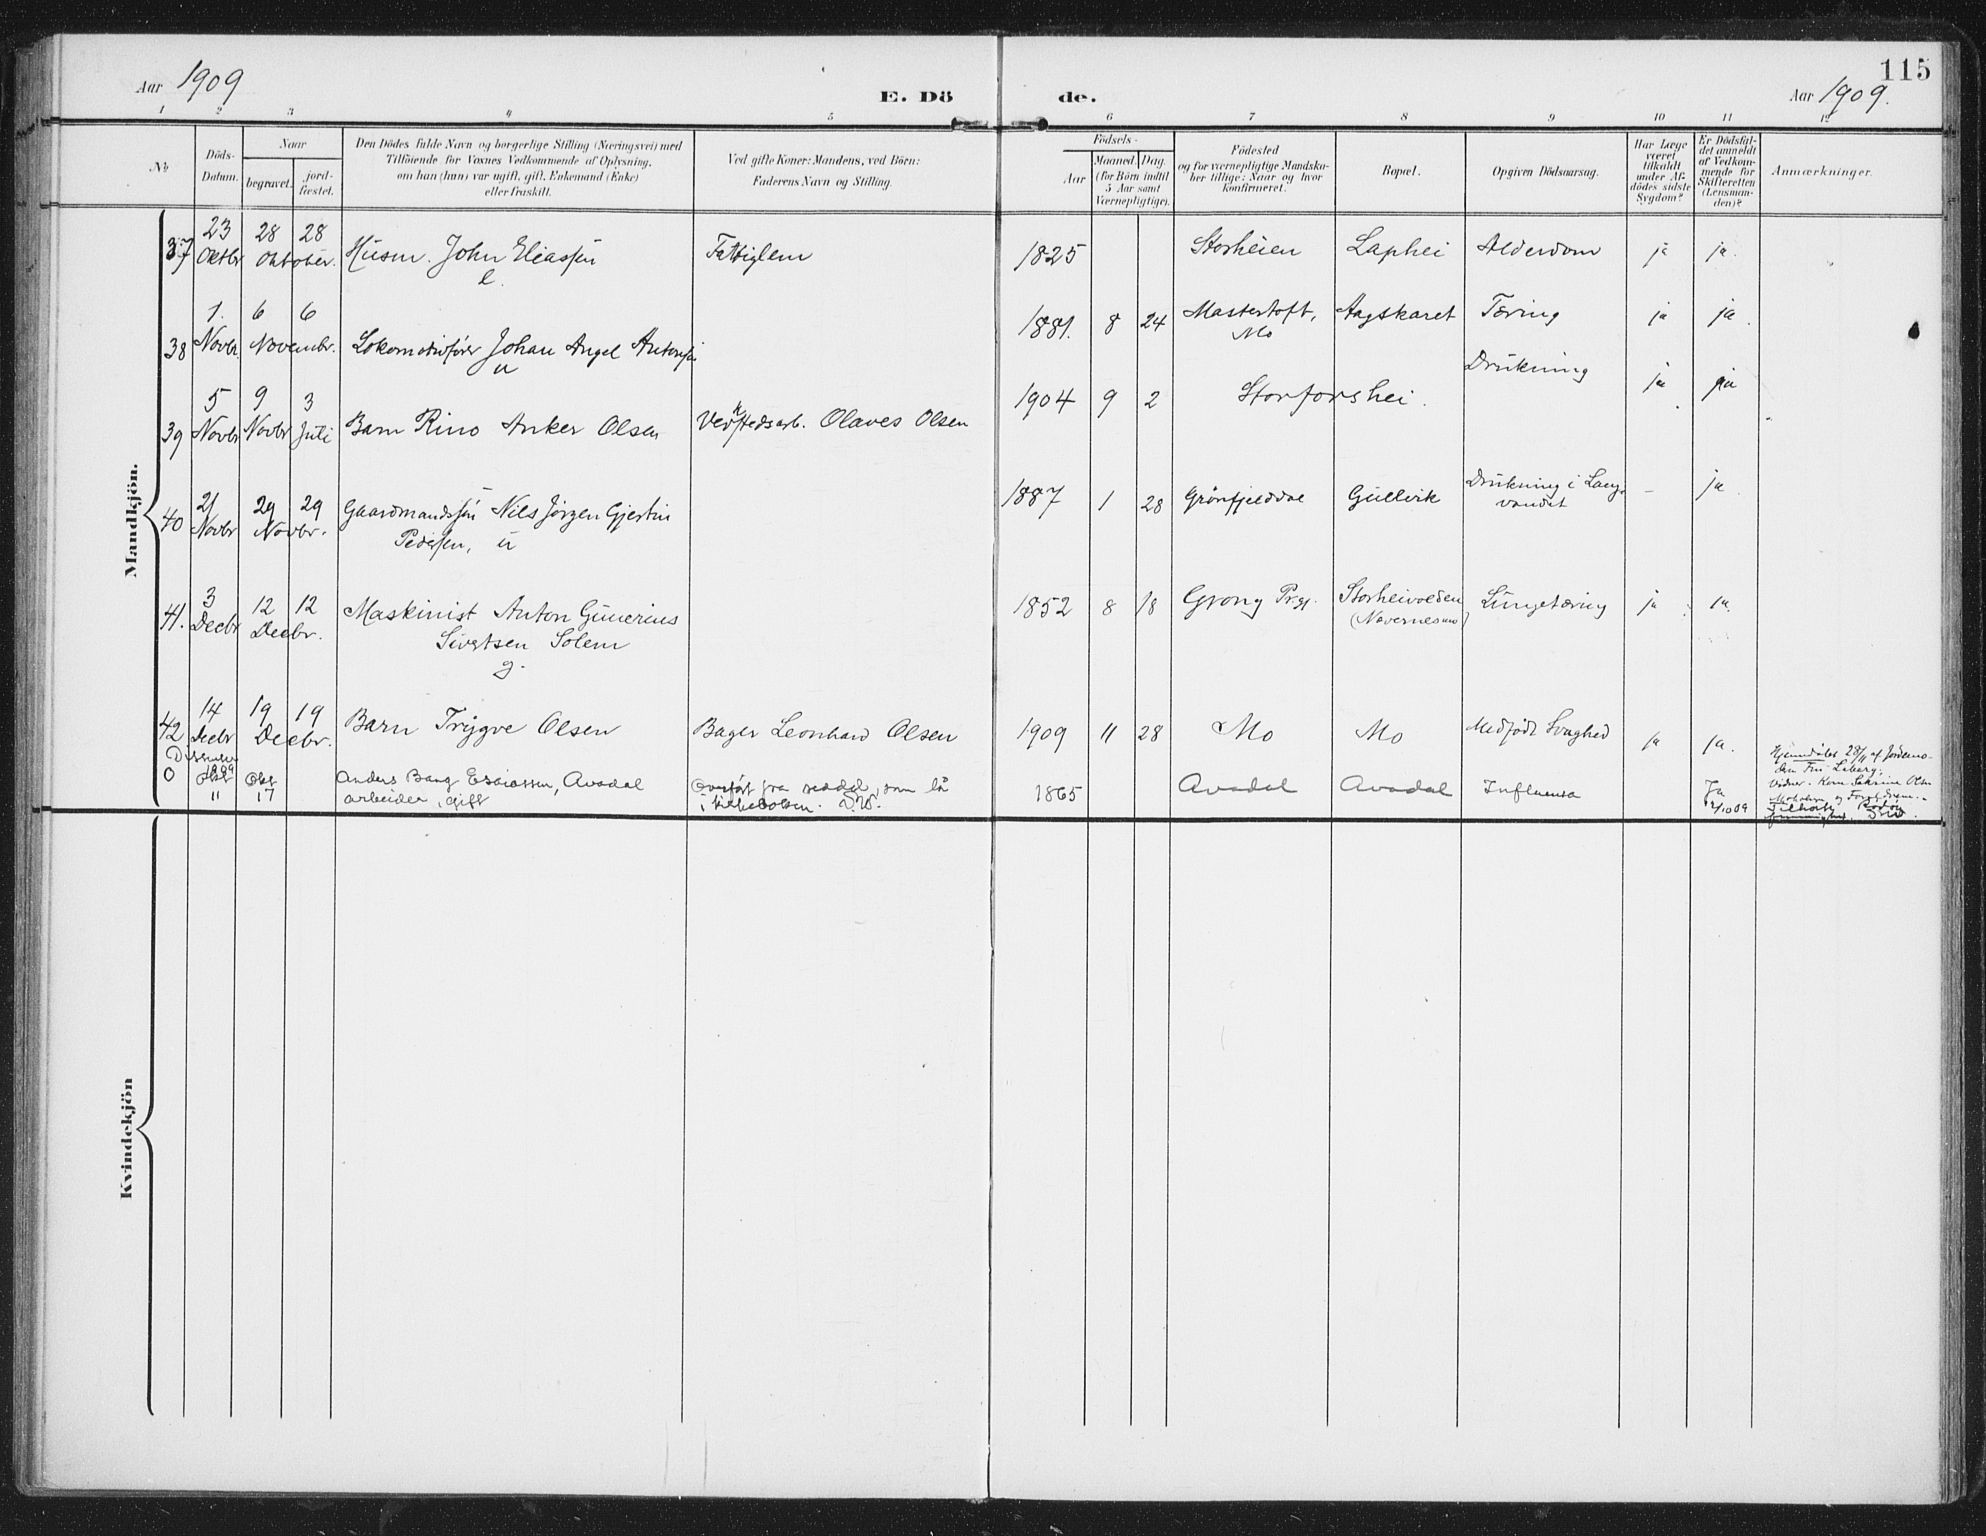 Aar 1909
E. Döde.
115
Aar 1909.
1 2 3 4 5 6 7 8 9 10 11 12
No
Döds-Datum.
Naar
begravet.
jordfæstet.
Den Dödes fulde Navn og borgerlige Stilling (Næringsvei) med
Tilföiende for Voxnes Vedkommende af Oplysning,
om han (hun) var ugift, gift, Enkemand (Enke)
eller fraskilt.
Ved gifte Koner: Mandens, ved Börn:
Faderens Navn og Stilling.
Födsels-
Aar
Maaned. Dag.
(for Börn indtil
5 Aar samt
Værnepligtige).
Födested
og for værnepligtige Mandskaber tillige: Naar og hvor
konfirmeret.
Bopæl.
Opgiven Dödsaarsag.
Har Læge
været
tilkaldt
under Afdödes sidste
Sygdom?
Er Dödsfaldet anmeldt
af Vedkommende for
Skifteretten
(Lensmanden)?
Anmærkninger.
Mandkjön.
37 23 Oktbr 28 28 Oktober. Husm. John Eliassen e. Fattiglem 1825 Storheien Laphei Alderdom ja ja.
38 1. Novbr. 6 6 Novembr. Lokomotivfører Johan Angel Antonsen u 1881. 8 24 Mastertoft, Mo Aagskaret Tæring ja ja.
39 5 Novbr 9 Novbr 3 Juli Barn Rino Anker Olsen Verkstedsarb. Olaves Olsen 1904 9 2 Storforshei. Drukning ja ja
40 21 Novbr 29 29 Novbr. Gaardmandssøn Nils Jørgen Gjertin
Pedersen, u 1887 1 28 Grønfjelddal Gullvik Drukning i Langvandet - ja.
41. 3 Decbr 12 12 Decbr. Maskinist Anton Gunerius
Sivertsen Solem
g. 1852 8 18 Grong Prgj. Storheivolden (Navernesmo) Lungetæring ja ja.
42 14 Decbr 19 19 Decbr. Barn Trygve Olsen Bager Leonhard Olsen 1909 11 28 Mo Mo Medfødt Svaghed ja ja.
Hjemmedøbt 28/11 af Jordemoderen
Dissenter
0 1909 Okt 11 Okt 17 Anders Bang Esaiassen, Avadal
arbeider, gift Overført fra seddel, som lå
i kirkeboken. 1865 Avadal Avadal Influensa Ja 12/10 09
Kvindekjön